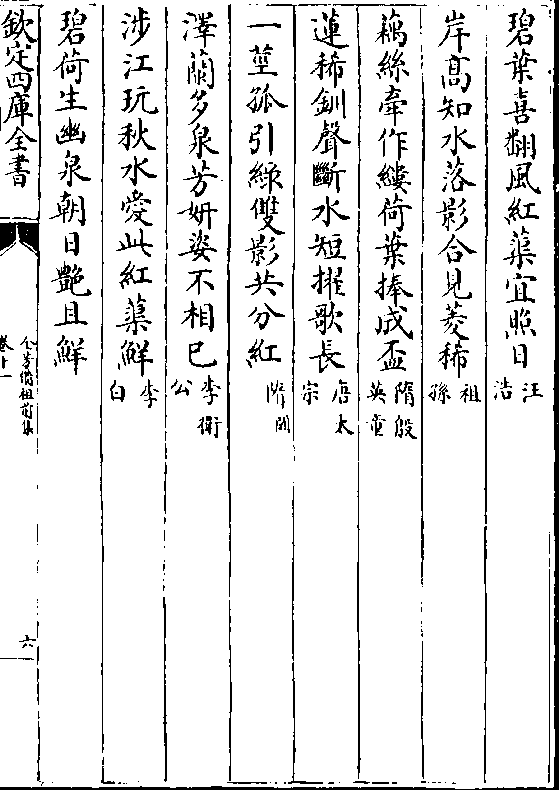 碧葉喜翻風紅蕖宜照日汪浩
岸髙知水落影合見菱稀祖孫
藕絲牽作縷荷葉捧成盃隋殷英童
蓮稀釧聲斷水短擢歌長唐太宗
一莖孤引緑雙影共分紅隋
澤蘭多泉芳妍姿不相已李衛公
涉江玩秋水愛此紅蕖鮮李白
碧荷生幽泉朝日艷且鮮
欽定四庫全書
全芳備祖前集
卷十一
六